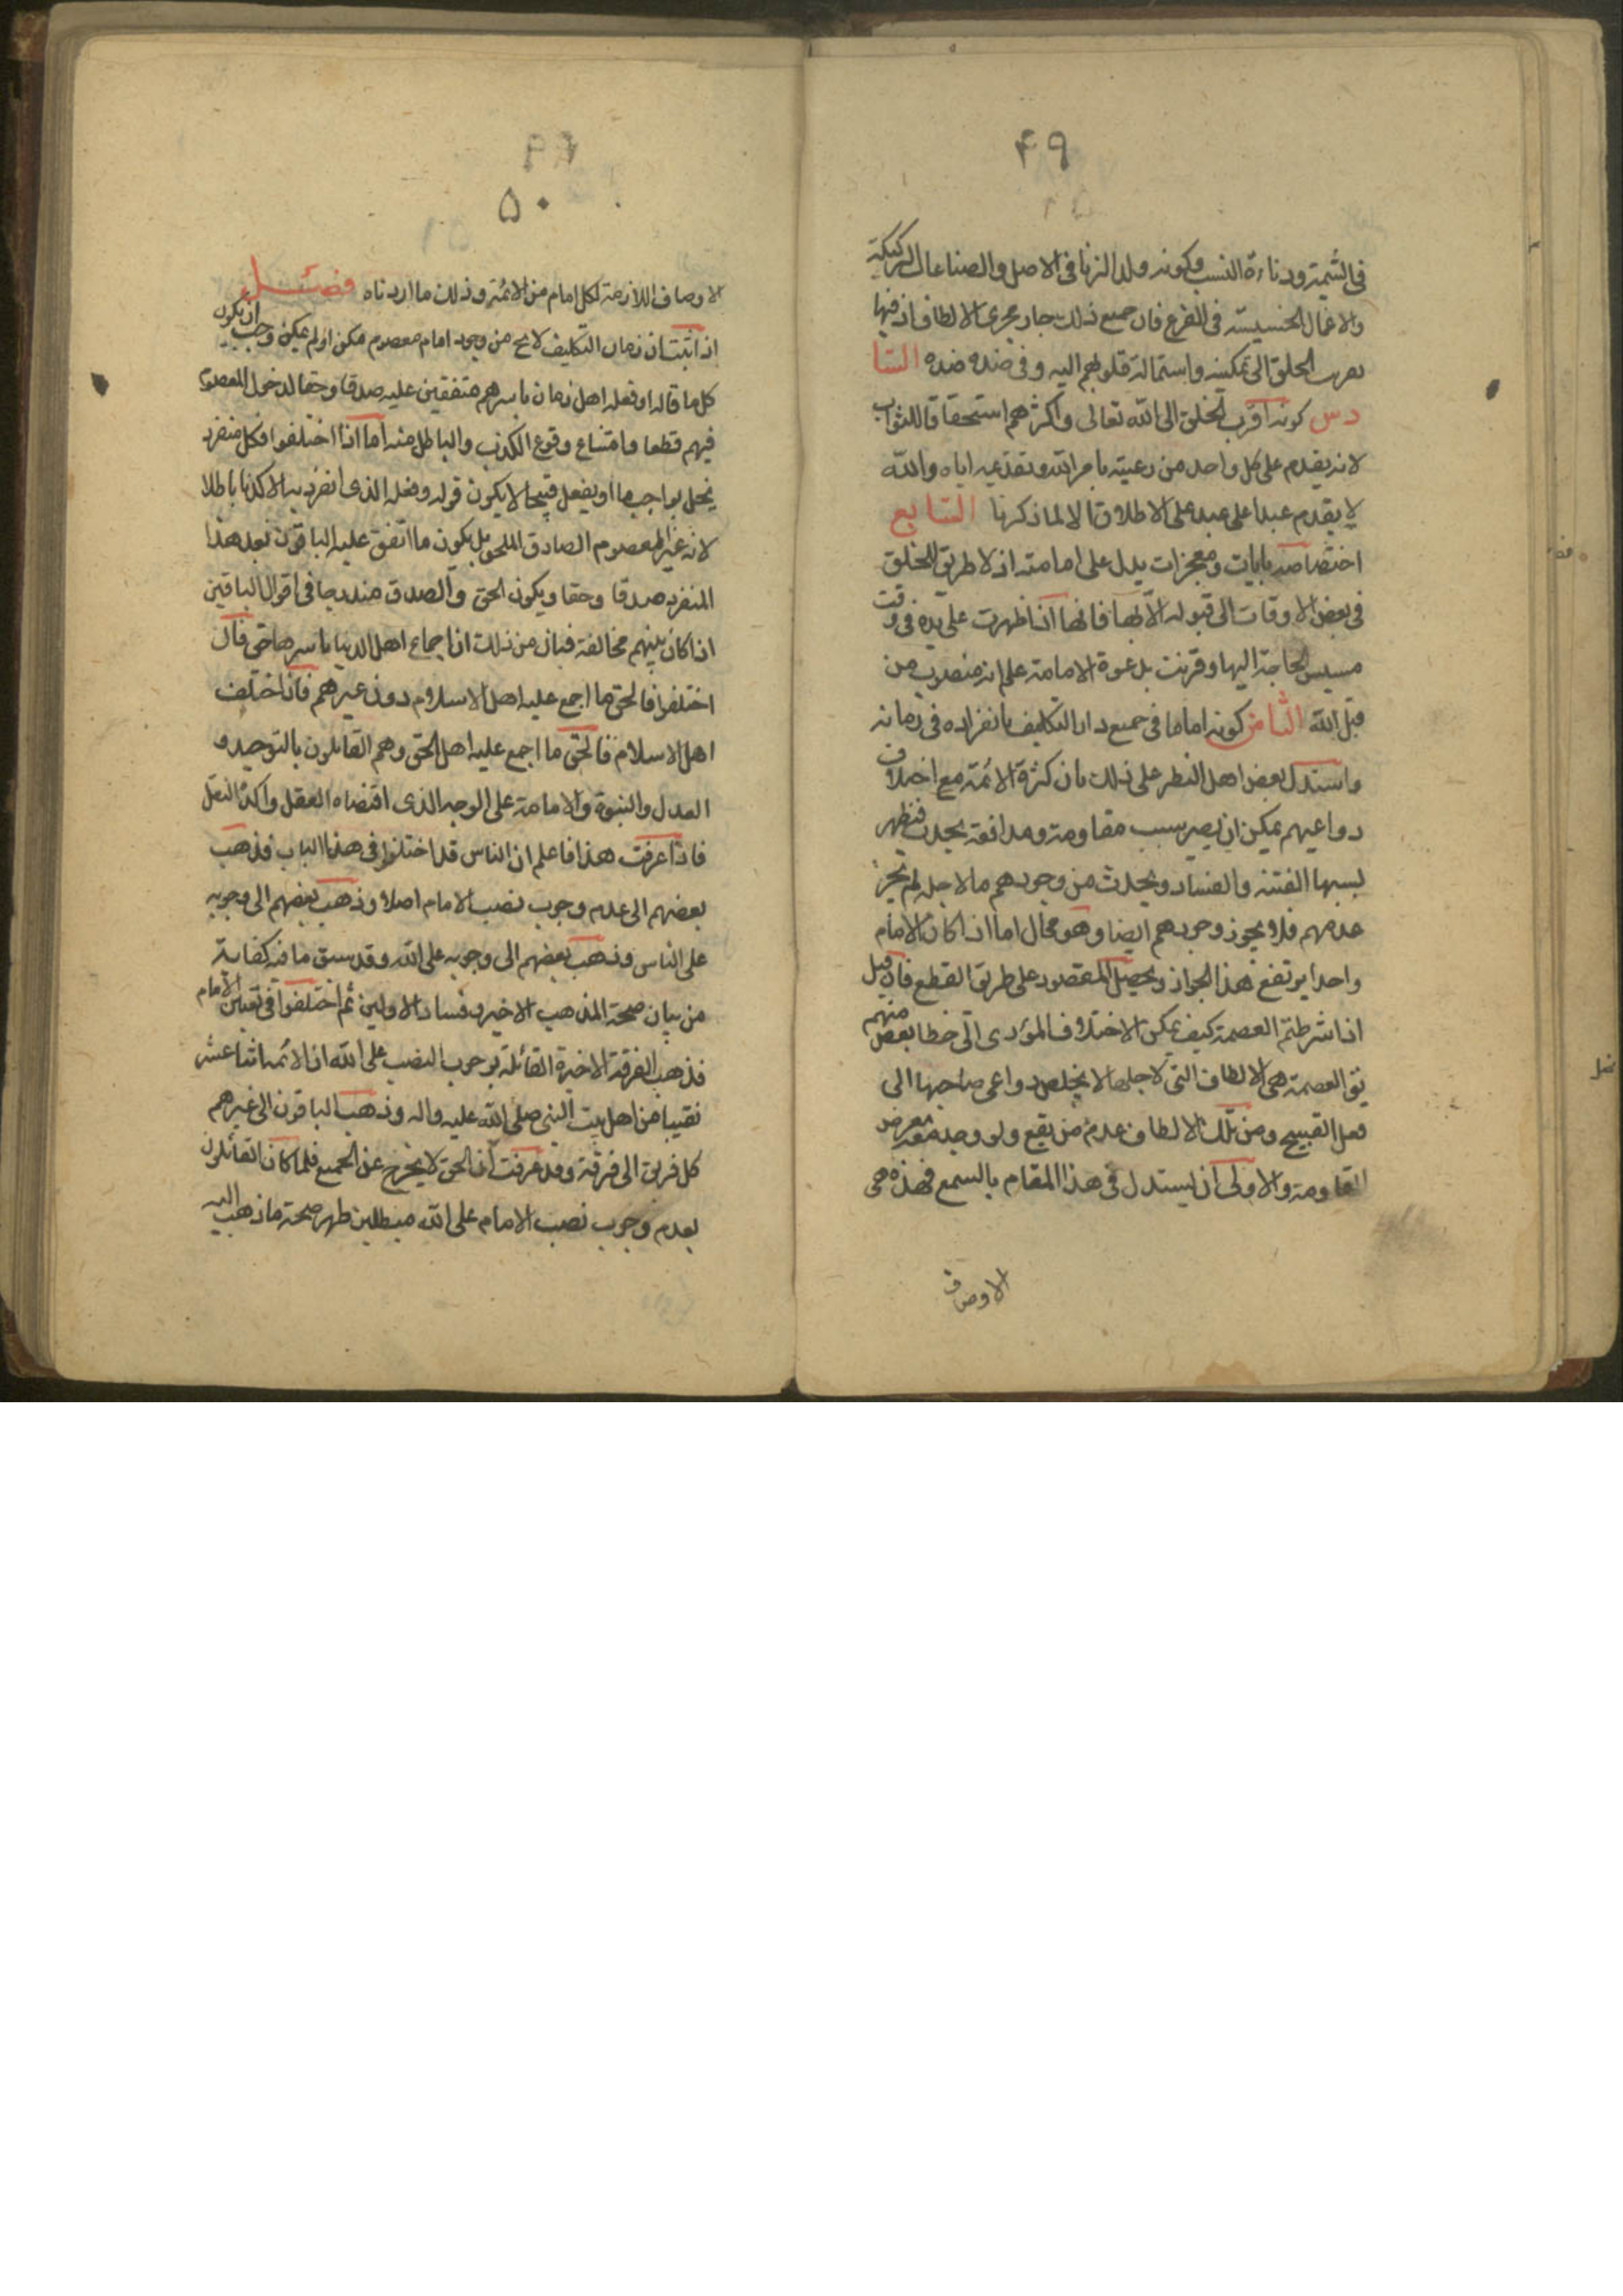 ۴۹
فى الشيمة ودناءة النسب وكونه ولد الزنا فى الاصل والصناعات الركيكة
والافعال الخسيسة فى الفرع فان جميع ذلك جار مجرى الالطاف اذ فيها
تقرب الخلق الى تمكينه واستمالة قلوبهم اليه وفى ضده ضده السا
دس كونه اقرب الخلق الى الله تعالى واكثرهم استحقاقا للثواب
لانه يقدم على كل واحد من رعيته بامر الله وتقديمه اياه والله
لا يقدم عبدا على عبد على الاطلاق الا لما ذكرنا السابع
اختصاصه بايات ومعجزات يدل على امامته اذ لا طريق للخلق
فى بعض الاوقات الى قبوله الا بها فانها اذا ظهرت على يده فى وقت
مسيس الحاجة اليها وقرنت بدعوة الامامة علم انه منصوب من
قبل الله الثامن كونه اماما فى جميع دار التكليف بانفراده فى زمانه
واستدل بعض اهل النظر على ذلك بان كثرة الائمة مع اختلاف
دواعيهم يمكن ان يصير سبب مقاومة ومدافعة يحدث فيظهر
بسببها الفتنة والفساد ويحدث من وجودهم ما لاجله لم يجز
عدمهم فلا يجوز وجودهم ايضا وهو محال اما اذا كان الامام
واحدا يرتفع هذا الجواز ويحصل المقصود على طريق القطع فان قيل
اذا شرطتم العصمة كيف يمكن الاختلاف المؤدى الى خطا بعض منهم
نقول العصمة هى الالطاف التى لاجلها لا يخلص دواعى صاحبها الى
فعل القبيح ومن تلك الالطاف عدم من يقع ولو وجد معه معرض
المقاومة والاولى ان يستدل فى هذا المقام بالسمع فهذه هى
الاوصاف
۵۰
الاوصاف اللازمة لكل امام من الائمة وذلك ما اردناه فصل
اذا ثبت ان زمان التكليف لا يخ من وجود امام معصوم مكن او لم يمكن وجب ان يكون
كل ما قاله او فعله اهل زمان باسرهم متفقين عليه صدقا وحقا لدخول المعصوم
فيهم قطعا وامتناع وقوع الكذب والباطل منه اما اذا اختلفوا فكل منفرد
يخل بواجب ما او يفعل قبيحا لا يكون قوله وفعله الذى انفرد به الا كذبا باطلا
لانه غير المعصوم الصادق المحق بل يكون ما اتفق عليه الباقون بعد هذا
المنفرد صدقا وحقا ويكون الحق والصدق مندرجا فى اقوال الباقين
اذا كان بينهم مخالفة فبان من ذلك ان اجماع اهل الدنيا باسرها حق فان
اختلفوا فالحق ما اجمع عليه اهل الاسلام دون غيرهم فاذا اختلف
اهل الاسلام فالحق ما اجمع عليه اهل الحق وهم القائلون بالتوحيد و
العدل والنبوة والامامة على الوجه الذى اقتضاه العقل واكده النقل
فاذا عرفت هذا فاعلم ان الناس قد اختلفوا فى هذا الباب فذهب
بعضهم الى عدم وجوب نصب الامام اصلا وذهب بعضهم الى وجوبه
على الناس وذهب بعضهم الى وجوبه على الله وقد سبق ما فيه كفاية
من بيان صحة المذهب الاخير وفساد الاولين ثم اختلفوا فى تعيين الامام
فذهب الفرقة الاخيرة القائلة بوجوب النصب على الله ان الائمة اثنا عشر
نقيبا من اهل بيت النبى صلى الله عليه واله وذهب الباقون الى غيرهم
كل فريق الى فرقة وقد عرفت ان الحق لا يخرج عن الجميع فلما كان القائلون
بعدم وجوب نصب الامام على الله مبطلين ظهر صحة ما ذهب اليه